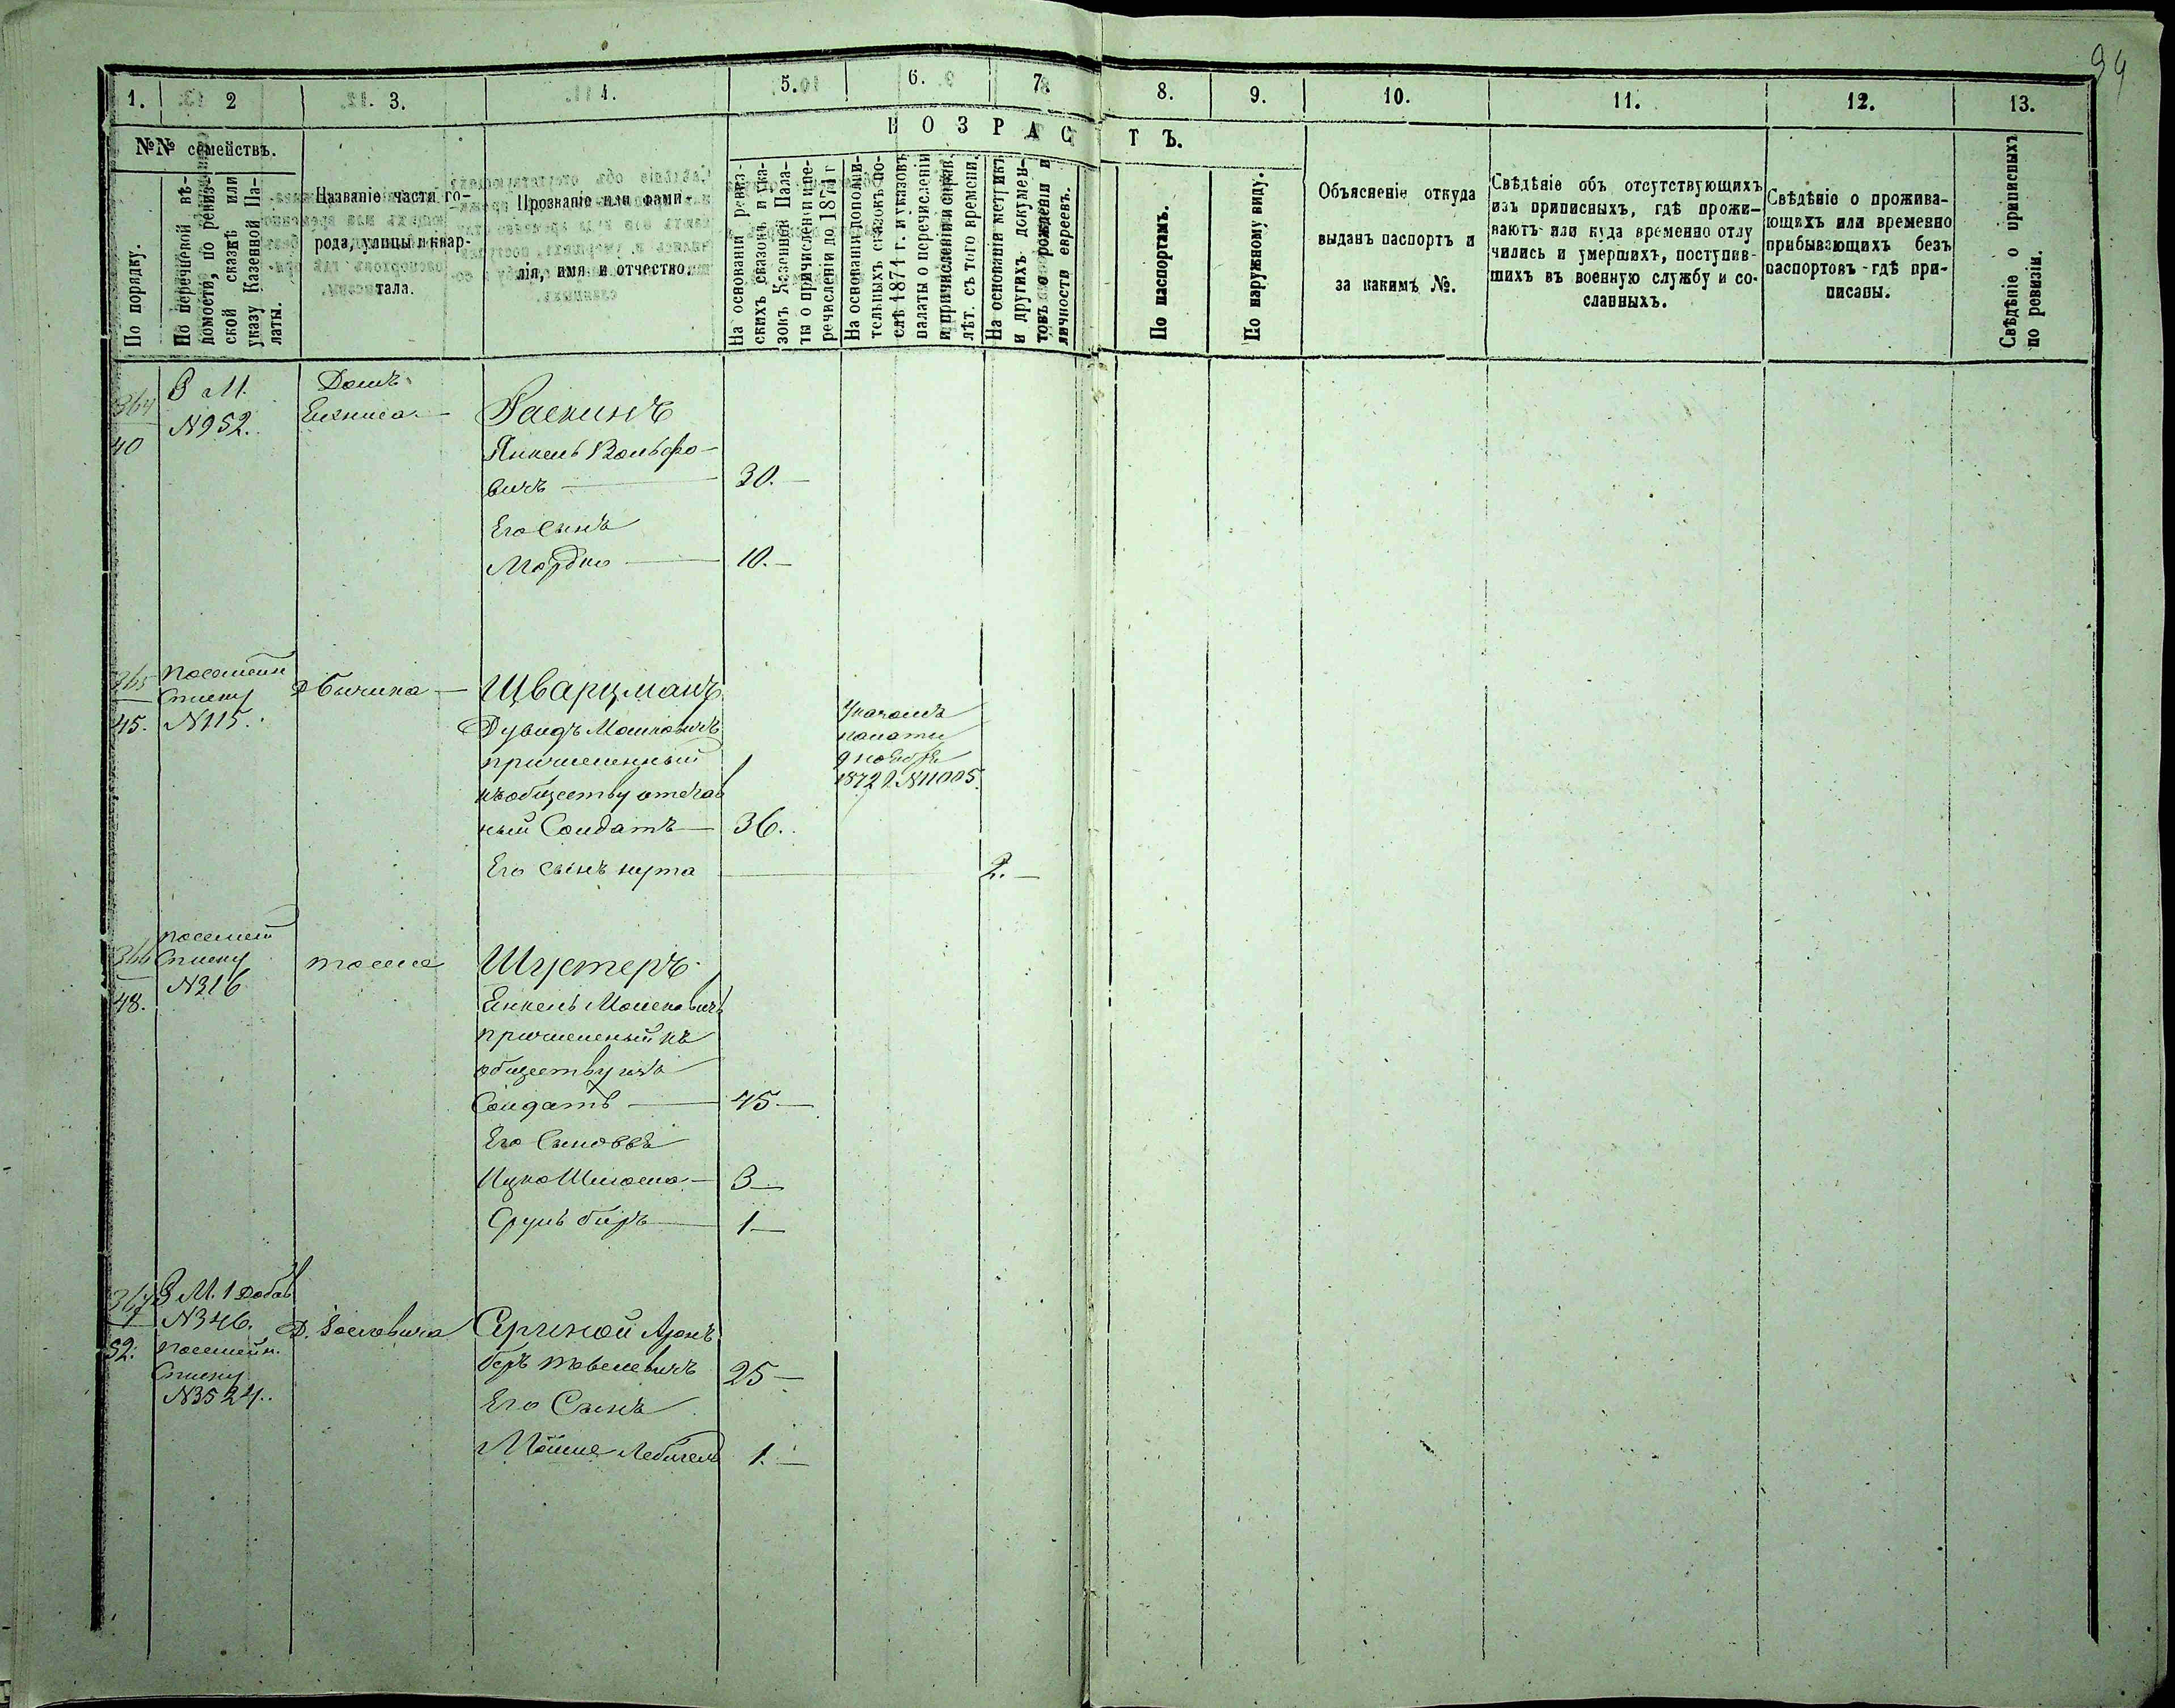 94
1. 2 3. 4. 5. 6. 7. 8. 9. 10. 11. 12. 13.
В О З Р А С Т Ъ.
№№ семействъ.
По порядку.
По перечневой вѣ-
домости, по ревиз-
ской сказкѣ или
указу Казенной Па-
латы.
Названіе части го-
рода, улицы и квар-
тала.
Прозваніе или фами-
лія, имя и отчество.
На основаніи ревиз-
скихъ сказокъ и ука-
зовъ Казенной Пала-
ты о причисленіи и пе-
речисленіи до 1874 г.
На основаніи дополни-
тельныхъ сказокъ по-
слѣ 1874 г. и указовъ
палаты о перечисленіи
и причисленіи и справ.
лѣт. съ того времени.
На основаніи метрикъ
и другихъ докумен-
товъ о рожденіи и
личности евреевъ.
По паспортамъ.
По наружному виду.
Объясненіе откуда
выданъ паспортъ и
за какимъ №.
Свѣдѣніе объ отсутствующихъ
изъ приписныхъ, гдѣ прожи-
ваютъ или куда временно отлу
чились и умершихъ, поступив-
шихъ въ военную службу и со-
сланныхъ.
Свѣдѣніе о прожива-
ющихъ или временно
прибывающихъ безъ
паспортовъ - гдѣ при-
писаны.
Свѣдѣніе о приписныхъ
по ревизіи.
364
40
В М.
N952.
Домъ
Раскинъ
Янкель Вольфо-
вичъ 30.
Его Сынъ
Мордко 10.
365
45.
посемейн
Списку
N115.
Шварцманъ
Дувидъ Мошковичъ
причисленный
къ обществу отстав
ный Солдатъ 36.
Указомъ
палаты
9 ноября
1872 г N11005.
Его сынъ нута 2.
366
48.
посемейн
Списку
N316
тоже
Шустеръ
Енкель Мошковичъ
причисленный къ
обществу изъ
Солдатъ 45
Его Сыновья
Ицко Шлома 3
Сруль беръ 1
367
52.
В М. 1 Добав
N346.
посемейн.
Списку
N3524.
Аронъ
беръ товелевичъ 25
Его Сынъ
Мойше 1.